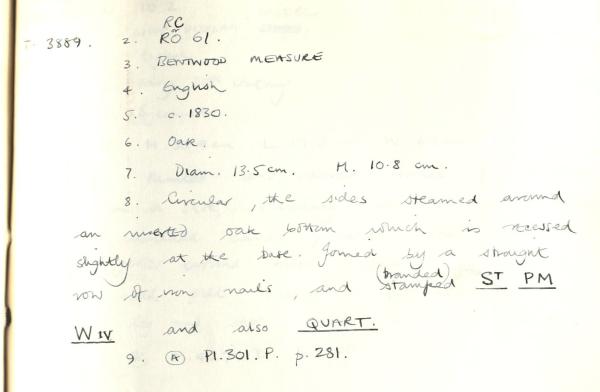 RC
or
3889. 2. RO 61.
3. BENTWOOD MEASURE
4. English
5. c. 1830.
6. Oak.
7. Diam. 13.5 cm. H. 10.8 cm.
8. Circular, the sides steamed around
an inverted oak bottom which is recessed
slightly at the base. Joined by a straight
(branded)
row of iron nails, and stamped ST PM
W IV and also QUART.
9. A Pl. 301. P. p. 281.